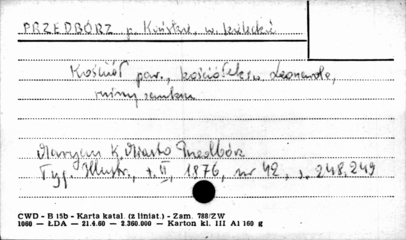 PRZEDBÓRZ p. Końskie, w. kielecki
Kościół par., kościółek św. Leonarda,
ruiny zamku
Maryan K. Miasto Przedbórz
Tyg. Illustr., t. II, 1876, nr 42, s. 248, 249
CWD - B 15b - Karta katal. (z liniat.) - Zam. 788/ZW
1060 — ŁDA — 21.4.60 — 2.360.000 — Karton kl. III A1 160 g